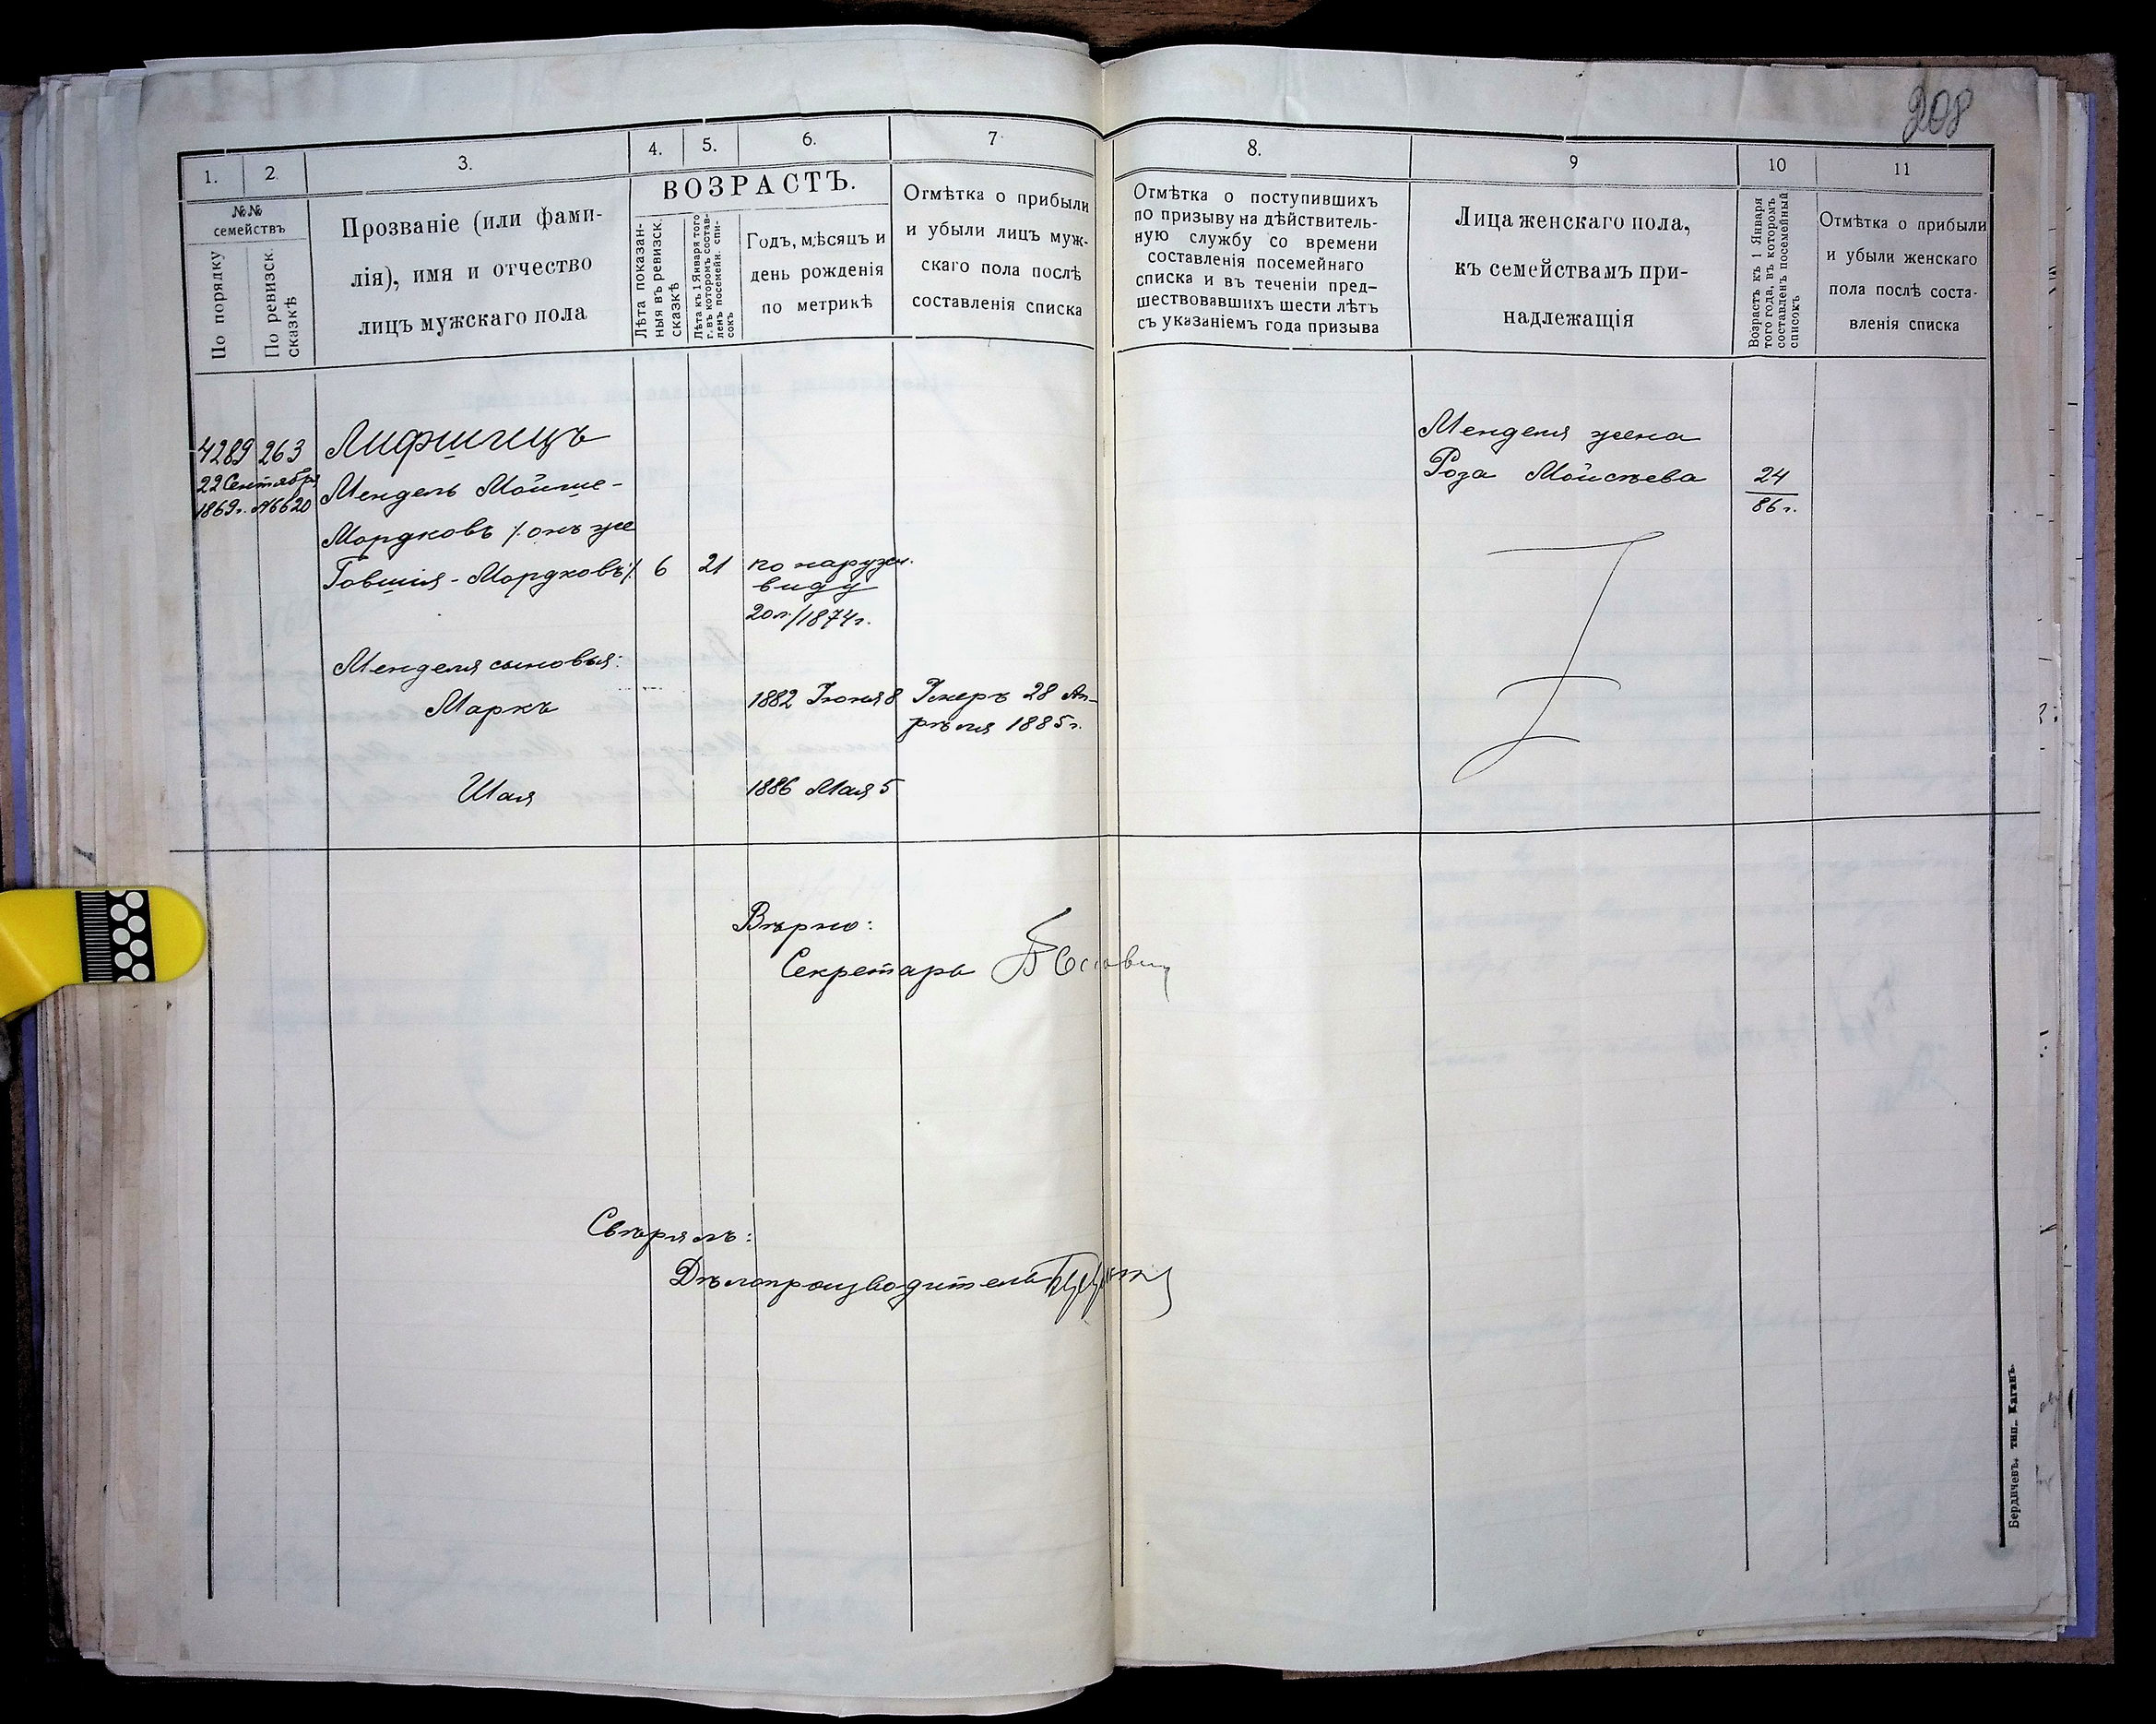 208
1.
2.
3.
4.
5.
6.
7
8.
9
10
11
№№
семействъ
По порядку
По ревизск.
сказкѣ
Прозваніе (или фами-
лія), имя и отчество
лицъ мужскаго пола
ВОЗРАСТЪ.
Лѣта показан-
ныя въ ревизск.
сказкѣ
Лѣта къ 1 Января того
г. въ которомъ состав-
ленъ посемейн. спи-
сокъ
Годъ, мѣсяцъ и
день рожденія
по метрикѣ
Отмѣтка о прибыли
и убыли лицъ муж-
скаго пола послѣ
составленія списка
Отмѣтка о поступившихъ
по призыву на дѣйствитель-
ную службу со времени
составленія посемейнаго
списка и въ теченіи пред-
шествовавшихъ шести лѣтъ
съ указаніемъ года призыва
Лица женскаго пола,
къ семействамъ при-
надлежащія
Возрастъ къ 1 Января
того года, въ которомъ
составленъ посемейный
списокъ
Отмѣтка о прибыли
и убыли женскаго
пола послѣ соста-
вленія списка
4289 263 Лифшицъ
22 Сентября
1869г. №6620
Мендель Мойше-
Мордковъ /: онъ же
Говшія-Мордковъ :/ 6 21 по наружн.
виду
20л./1874г.
Менделя сыновья:
Маркъ 1882 Іюня 8 Умеръ 28 Ап-
рѣля 1885г.
Шая 1886 Мая 5
Менделя жена
Роза Мойсѣева 24
86г.
Вѣрно:
Секретарь
Свѣрялъ:
Дѣлопроизводитель
Бердичевъ, тип. Каганъ.